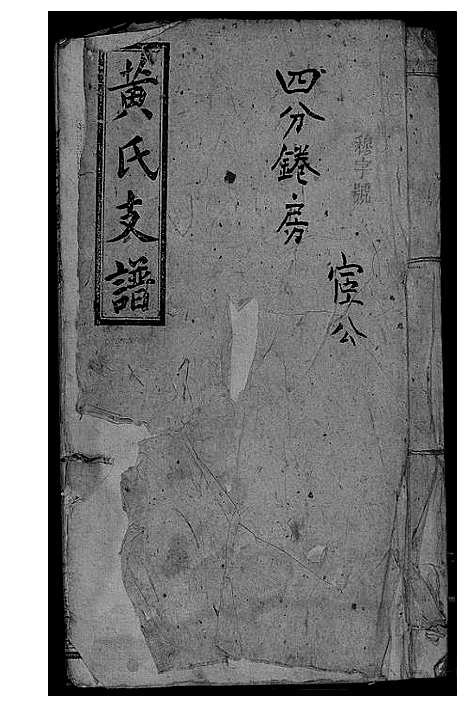 穆字號
宦公
四分錈房
黃氏支譜